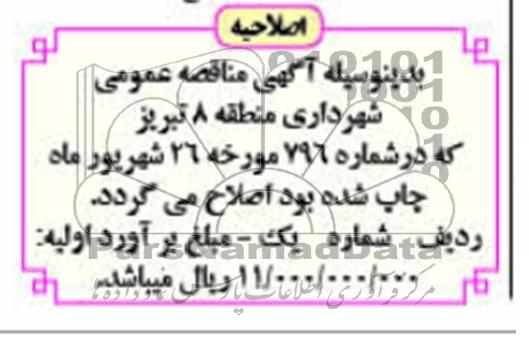 اصلاحیه
بدینوسیله آگهی مناقصه عمومی
شهرداری منطقه ۸ تبریز
که درشماره ۷۹۶ مورخه ۲۶ شهریور ماه
چاپ شده بود اصلاح می گردد.
ردیف شماره یک - مبلغ بر آورد اولیه:
۱۱/۰۰۰/۰۰۰/۰۰۰ ریال میباشد.
ParsNamadData
مرکز فرآوری اطلاعات پارس نماد داده ها